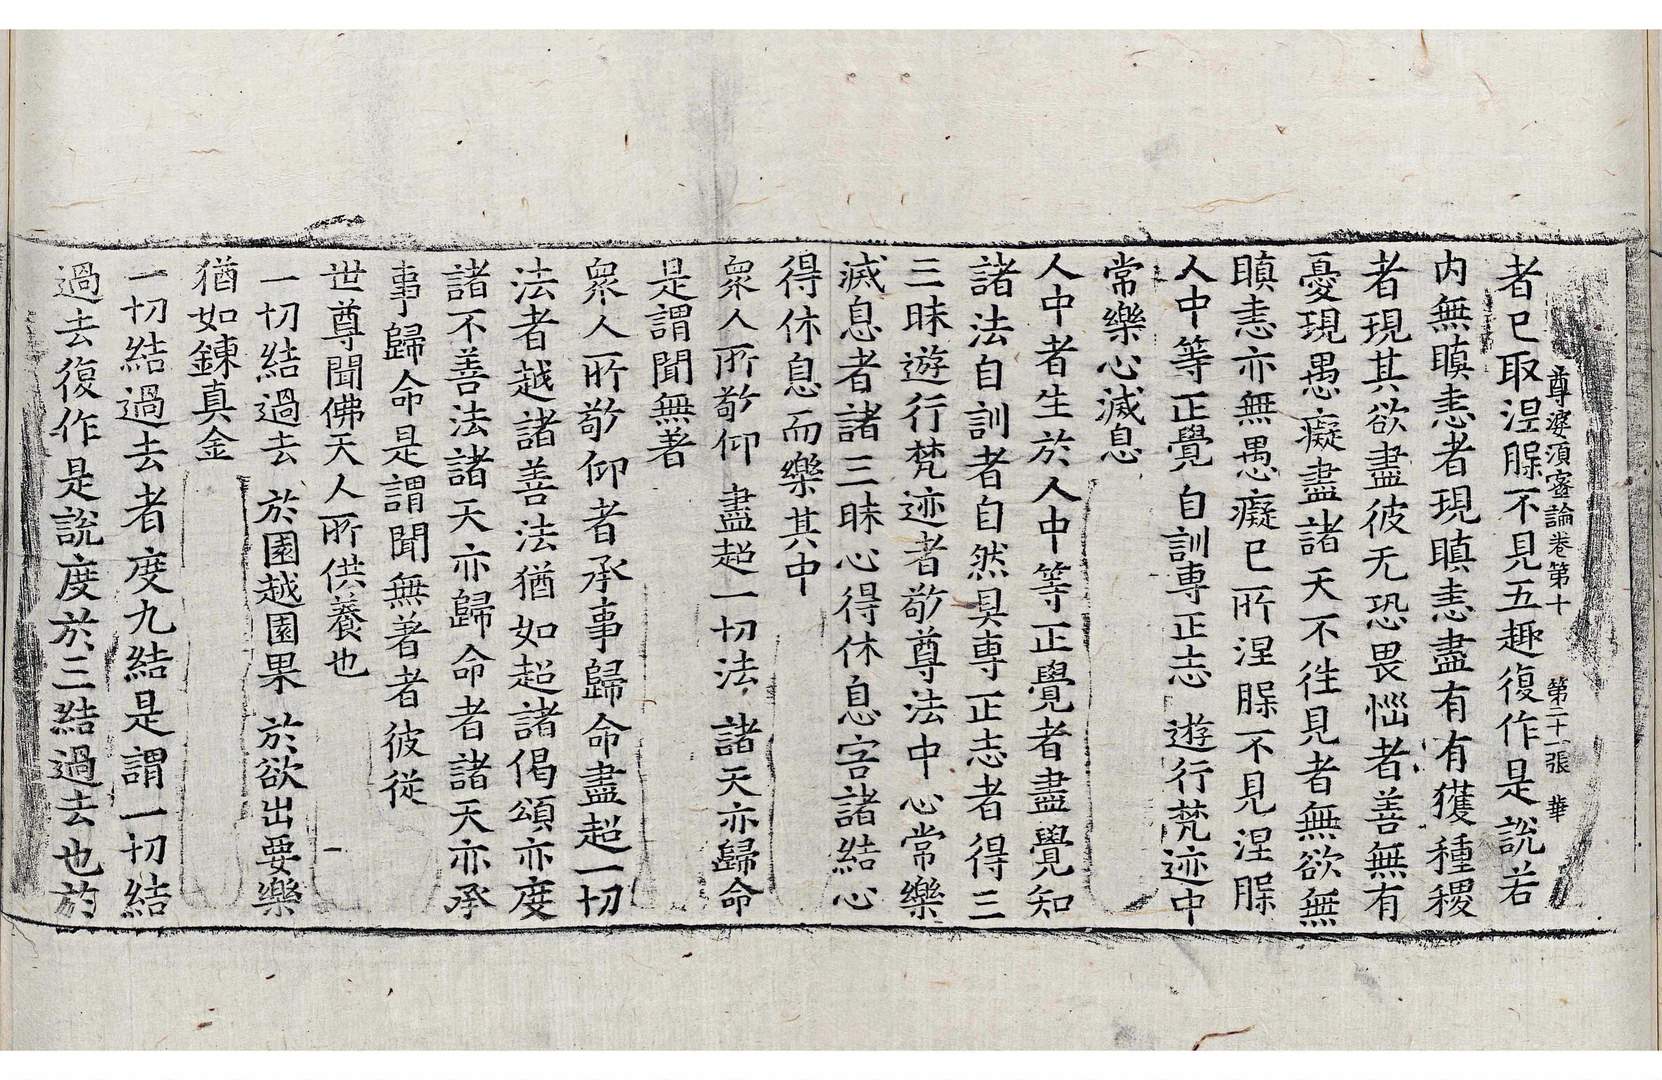 尊婆須蜜論卷第十　第二十一張　華
者已取涅槃不見五趣復作是說若
內無瞋恚者現瞋恚盡有有獲種稷
者現其欲盡彼无恐畏惱者善無有
憂現愚癡盡諸天不往見者無欲無
瞋恚亦無愚癡已所涅槃不見涅槃
人中等正覺　自訓專正志　遊行梵迹中
常樂心滅息
人中者生於人中等正覺者盡覺知
諸法自訓者自然具專正志者得三
三昧遊行梵迹者敬尊法中心常樂
滅息者諸三昧心得休息容諸結心
得休息而樂其中
衆人所敬仰　盡超一切法　諸天亦歸命
是謂聞無著
衆人所敬仰者承事歸命盡超一切
法者越諸善法猶如超諸偈頌亦度
諸不善法諸天亦歸命者諸天亦承
事歸命是謂聞無著者彼從
世尊聞佛天人所供養也
一切結過去　於園越園果　於欲出要樂
猶如鍊真金
一切結過去者度九結是謂一切結
過去復作是說度於三結過去也於